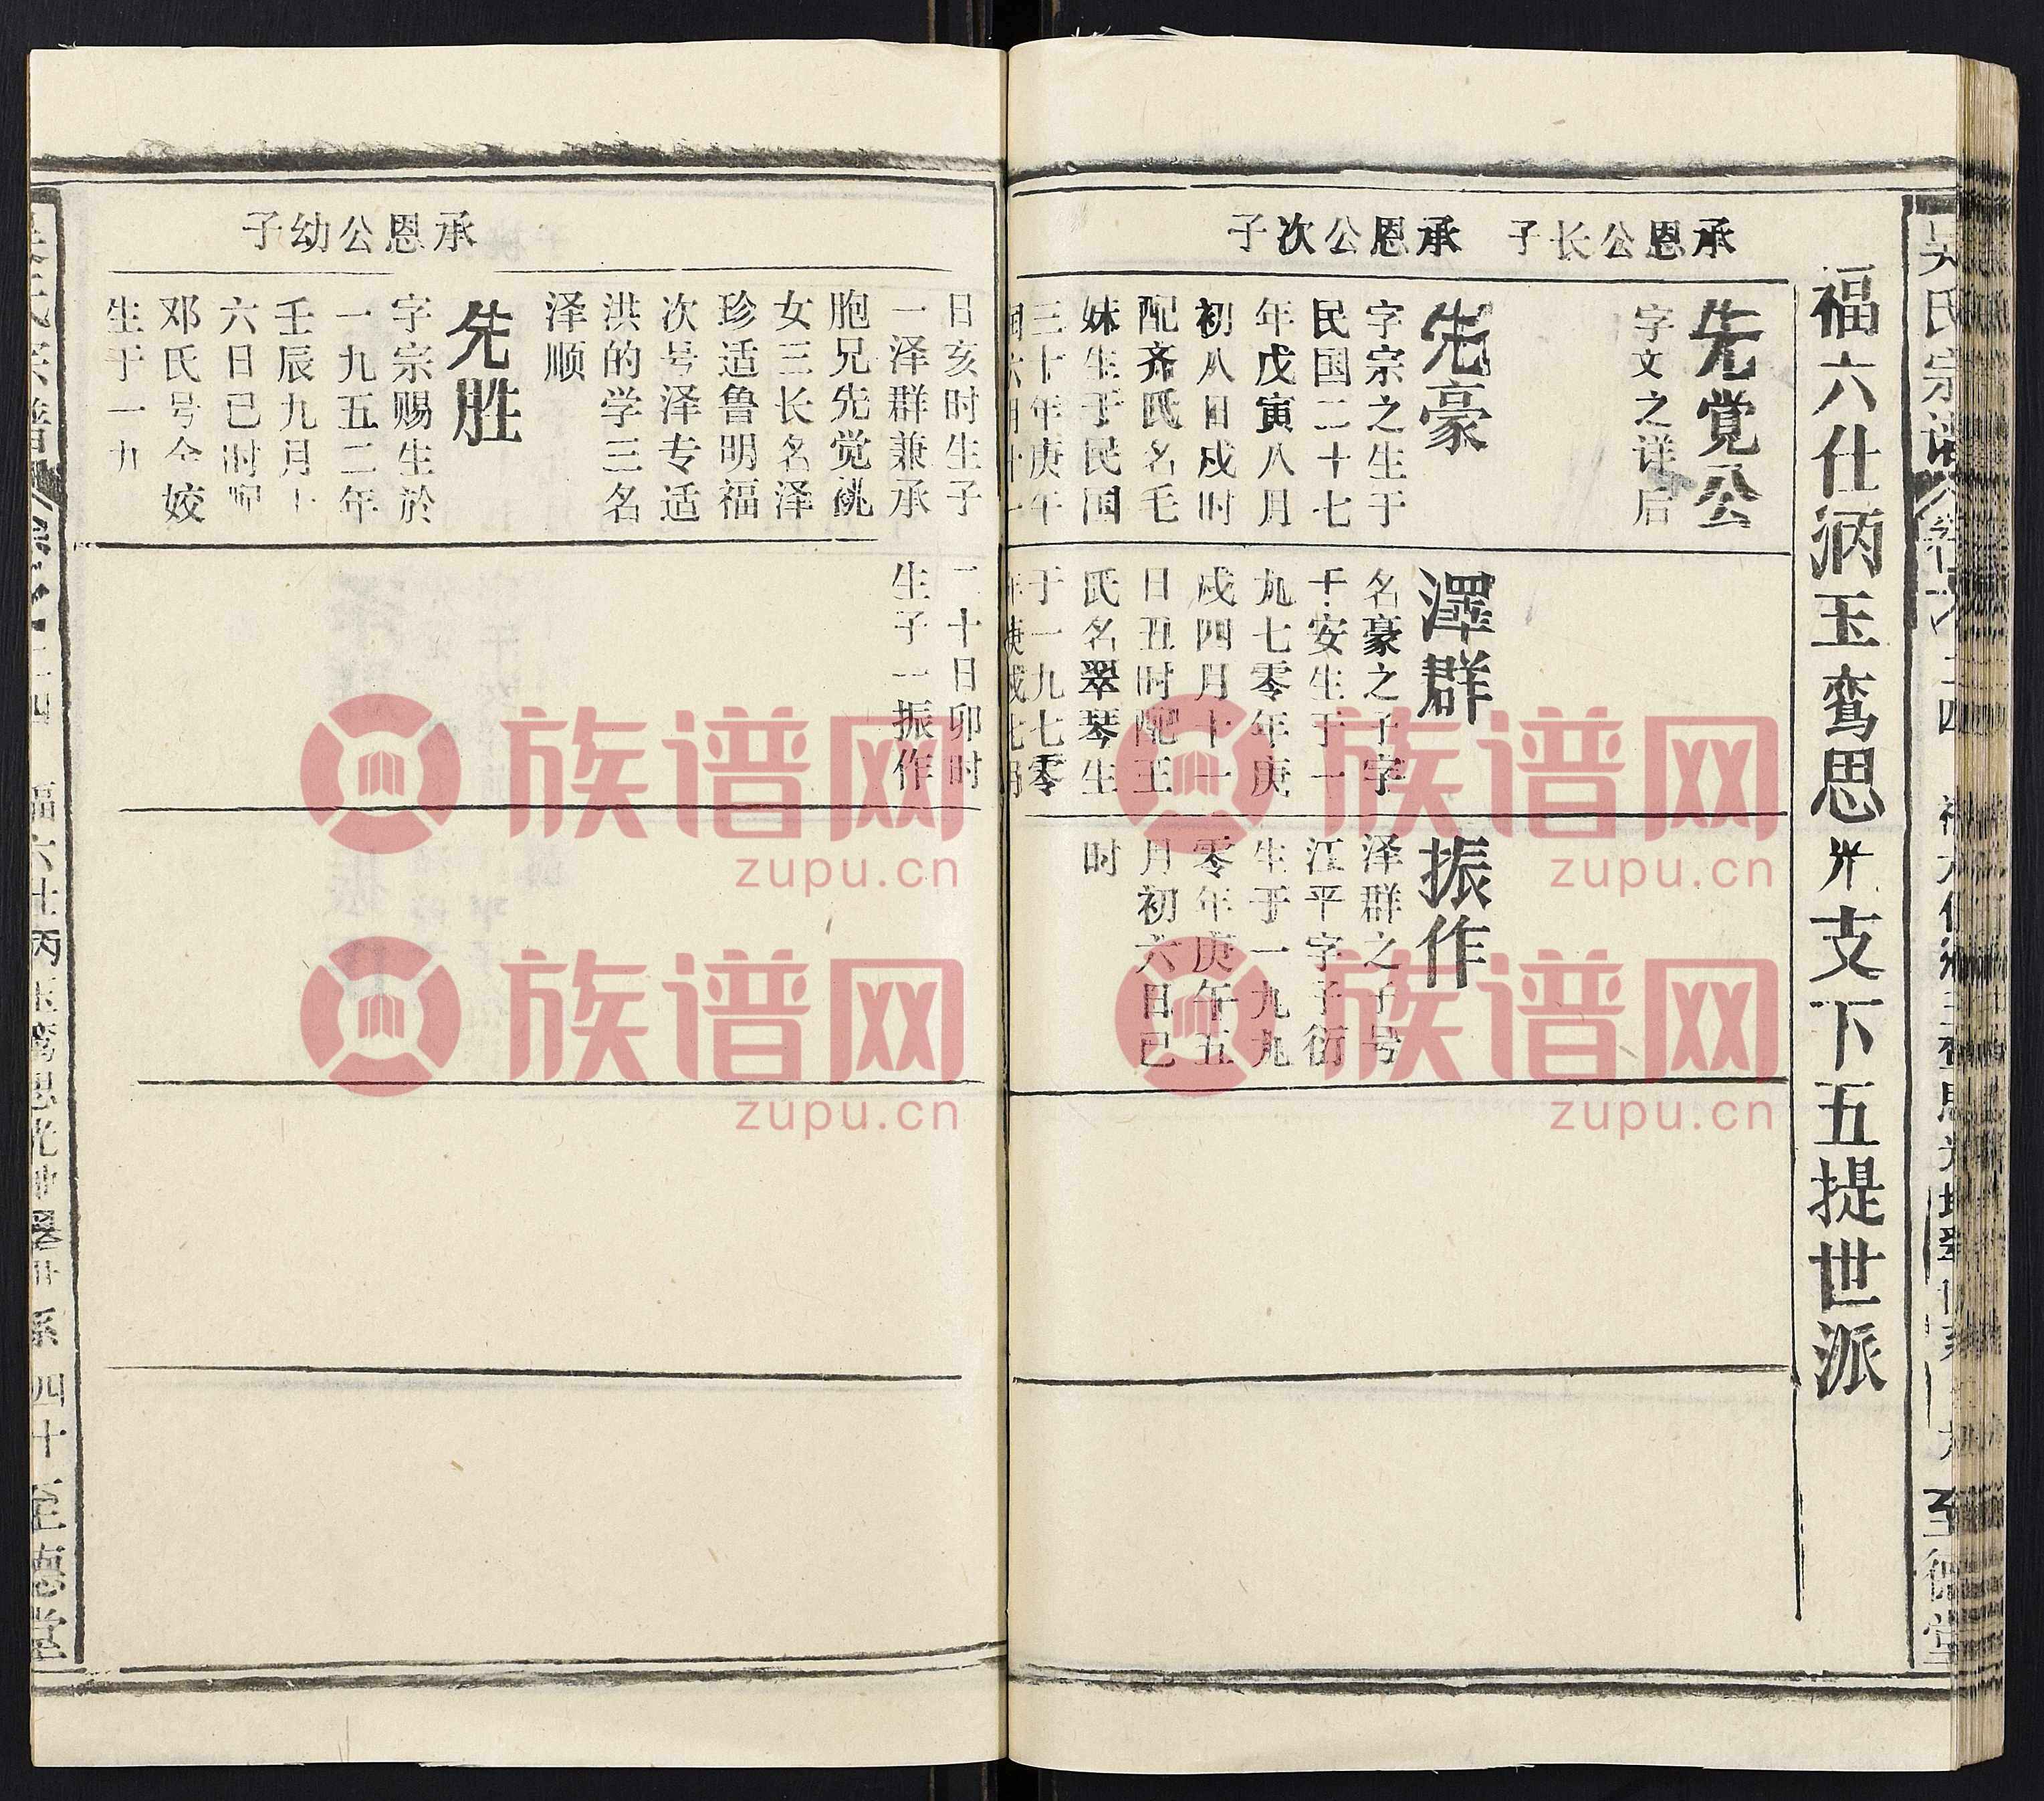 福六仕炳玉鸾思光支下五提世派
承恩公长子
先觉公
字文之详后
承恩公次子
先豪
字宗之生于
民国二十七
年戊寅八月
初八日戌时
配齐氏名毛
妹生于民国
三十年庚午
泽群
名豪之子字
千安生于一
九七零年庚
戌四月十一
日丑时配王
氏名翠琴生
于一九七零
振作
泽群之子号
江平字子衍
生于一九九
零年庚午五
月初六日巳
时
日亥时生子
一泽群兼承
胞兄先觉祧
女三长名泽
珍适鲁明福
次号泽专适
洪的学三名
泽顺
二十日卯时
生子一振作
承恩公幼子
先胜
字宗赐生於
一九五二年
壬辰九月十
六日巳时配
邓氏号全姣
生于一九
至德堂
族谱网
zupu.cn
族谱网
zupu.cn
族谱网
zupu.cn
族谱网
zupu.cn